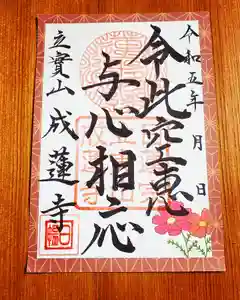 令和五年 月 日
令此空惠
与心相応
立實山 成蓮寺